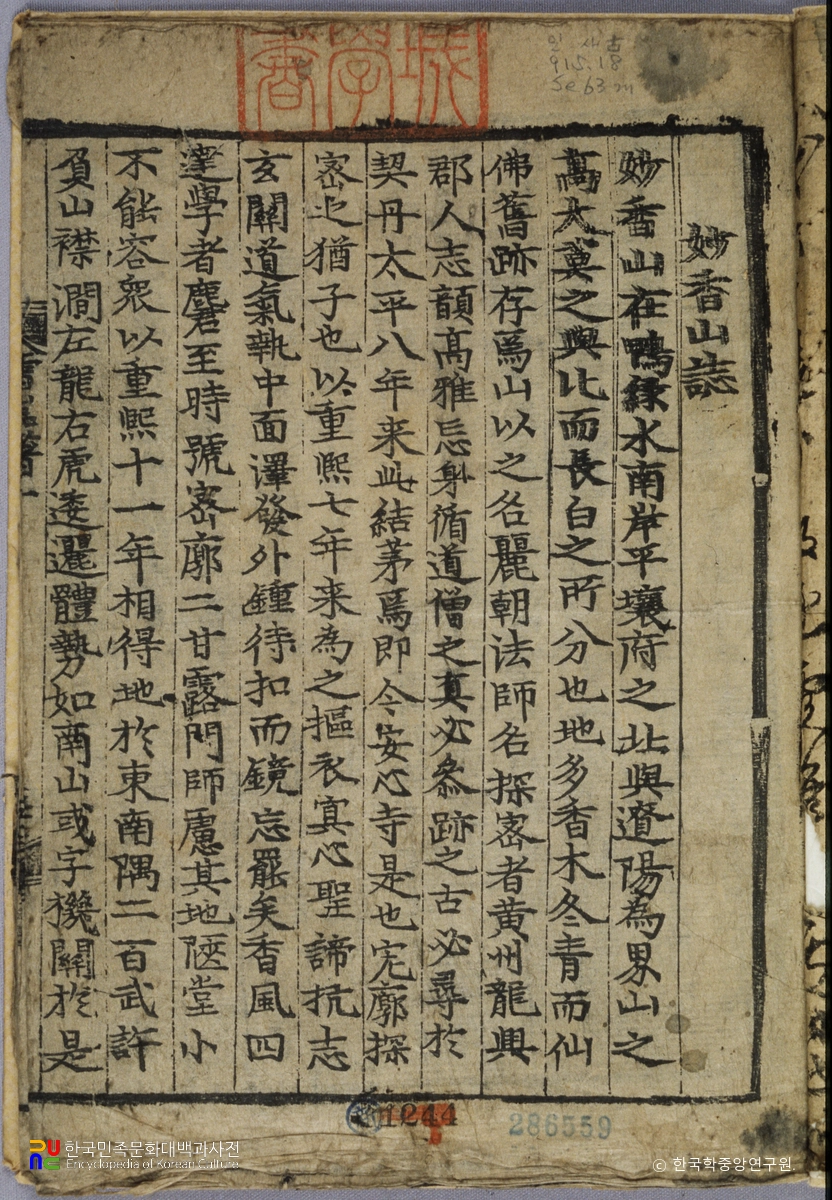 妙香山誌
妙香山在鴨綠水南岸平壤府之北與遼陽為界山之
高大莫之與比而長白之所分也地多香木冬青而仙
佛舊跡存焉山以之名麗朝法師名探密者黃州龍興
郡人志韻高雅忘身循道僧之真必叅跡之古必尋於
契丹太平八年来此結茅焉即今安心寺是也宏廓探
密之猶子也以重熙七年来為之摳衣寘心聖諦抗志
玄關道氣執中面澤發外鍾待扣而鏡忘罷矣香風四
達學者麕至時號密廓二甘露門師慮其地陿堂小
不能容衆以重熙十一年相得地於東南隅二百武許
負山襟澗左龍右虎逶邐體勢如南山或字機關於是
인 사古
915.18
Se63m
1244
286559
한국민족문화대백과사전
Encyclopedia of Korean Culture
© 한국학중앙연구원